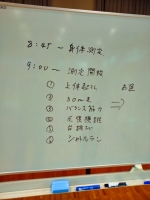 8:45～身体測定
9:00～ 測定開始
① 上体起こし お茶
② 50m走
③ バランス能力
④ 反復横跳
⑤
⑥ シャトルラン